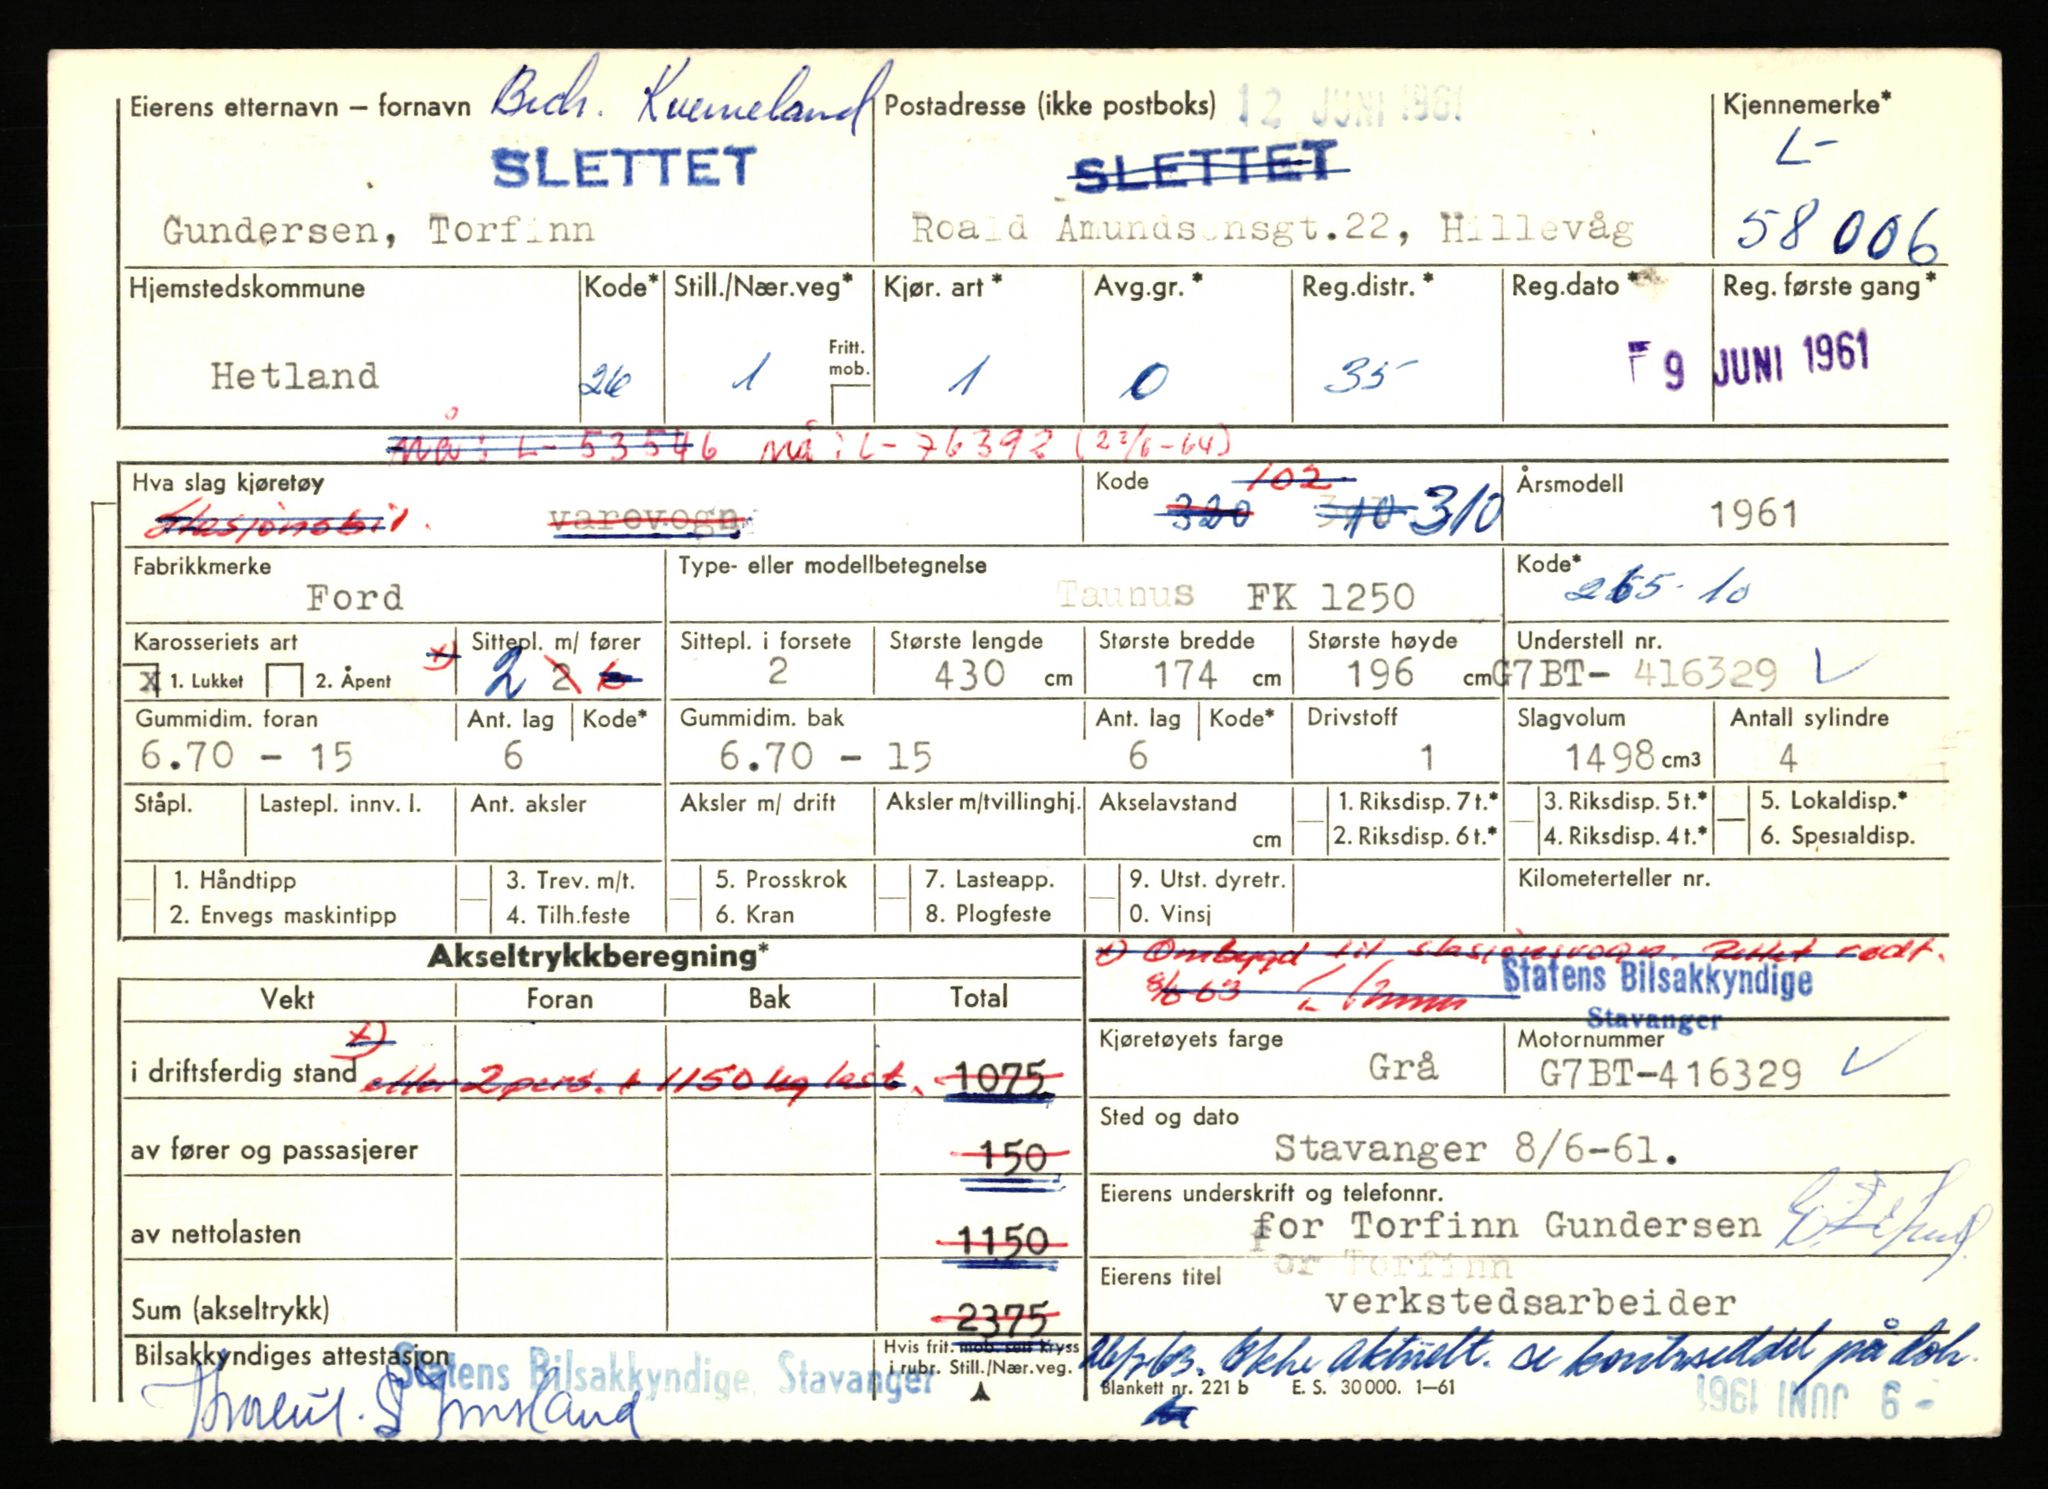 Eierens etternavn – fornavn Brdr. Kverneland Postadresse (ikke postboks) 12 JUNI 1961 Kjennemerke*
SLETTET SLETTET L-
Gundersen, Torfinn Roald Amundsensgt.22, Hillevåg 58006
Hjemstedskommune Kode* Still./Nær.veg* Kjør. art* Avg.gr.* Reg.distr.* Reg.dato* Reg. første gang*
Fritt. mob.
Hetland 26 1 1 0 35 9 JUNI 1961
Nå: L- 53546 Nå: L- 76392 (22/6-64)
Hva slag kjøretøy Kode 102 Årsmodell
Stasjonsbil. varevogn 320 310 310 1961
Fabrikkmerke Type- eller modellbetegnelse Kode*
Ford Taunus FK 1250 265-10
Karosseriets art x) Sittepl. m/ fører Sittepl. i forsete Største lengde Største bredde Største høyde Understell nr.
X 1. Lukket 2. Åpent 2 2 6 2 430 cm 174 cm 196 cm G7BT- 416329
Gummidim. foran Ant. lag Kode* Gummidim. bak Ant. lag Kode* Drivstoff Slagvolum Antall sylindre
6.70 - 15 6 6.70 - 15 6 1 1498 cm3 4
Ståpl. Lastepl. innv. l. Ant. aksler Aksler m/ drift Aksler m/tvillinghj. Akselavstand 1. Riksdisp. 7 t.* 3. Riksdisp. 5 t.* 5. Lokaldisp.*
cm 2. Riksdisp. 6 t.* 4. Riksdisp. 4 t.* 6. Spesialdisp.
1. Håndtipp 3. Trev. m/t. 5. Prosskrok 7. Lasteapp. 9. Utst. dyretr. Kilometerteller nr.
2. Envegs maskintipp 4. Tilh.feste 6. Kran 8. Plogfeste 0. Vinsj
Akseltrykkberegning* x) Ombygd til stasjonsvogn. Rettet rødt.
8/6 63 Statens Bilsakkyndige
Vekt Foran Bak Total Stavanger
x) Kjøretøyets farge Motornummer
i driftsferdig stand eller 2 pers. + 1150 kg last. 1075 Grå G7BT-416329
Sted og dato
av fører og passasjerer 150 Stavanger 8/6-61.
Eierens underskrift og telefonnr.
av nettolasten 1150 for Torfinn Gundersen
or Torfinn
Eierens titel
Sum (akseltrykk) 2375 verkstedsarbeider
Bilsakkyndiges attestasjon Statens Bilsakkyndige, Stavanger Hvis frit. mob. sett kryss i rubr. Still./Nær.veg. 26/7 63. Ikke aktuelt. se kontrseddel på dok.
Blankett nr. 221 b E. S. 30000. 1-61
- 9 JUNI 1961